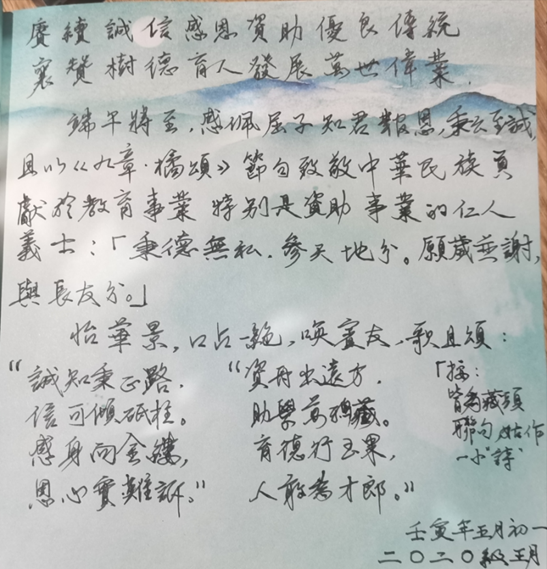 賡續誠信感恩資助優良傳統
襄贊樹德育人發展萬世偉業.
端午將至,感佩屈子知君報恩,秉云至誠,
且以《九章·橘頌》節句致敬中華民族貢
獻於教育事業特別是資助事業的仁人
義士:「秉德無私.參天地兮。願歲並謝,
與長友兮。」
怡華景,口占一絕,喚賓友,歌且頌:
"誠知秉正路.
信可傾砥柱。
感身向金縷,
恩心實難訴。"
"資舟出遠方.
助學萬鴻藏。
育德行玉果,
人敢為才郎。"
「按:
皆為藏頭
聯句 姑作
一小"詩"
壬寅年五月初一
二〇二〇級